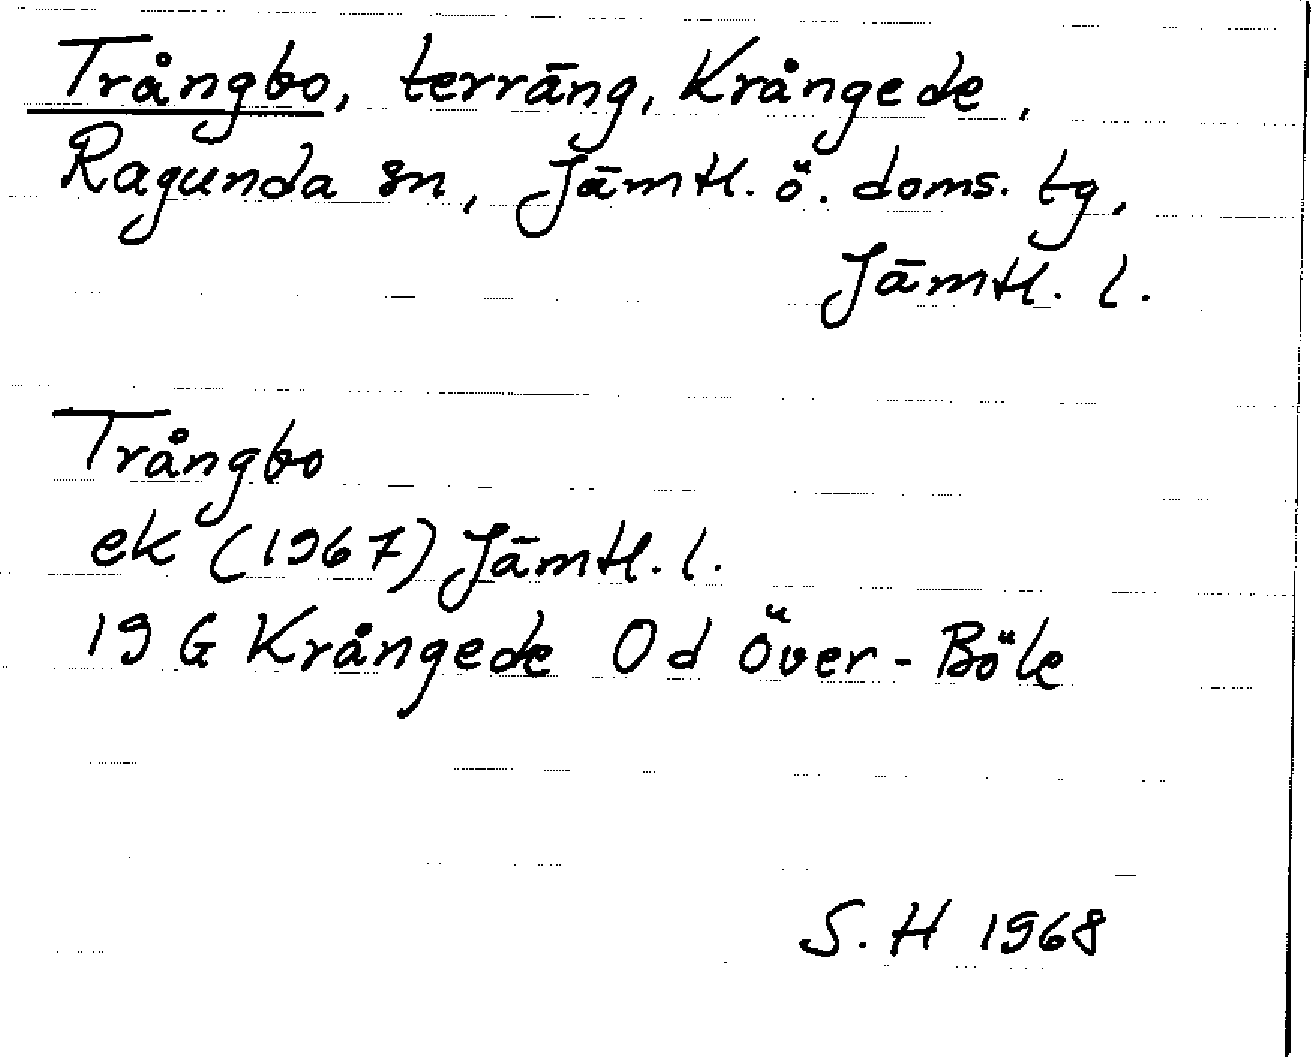 Trångbo, terräng, Krångede,
Ragunda sn, Jämtl. ö. doms. tg,
Jämtl. l.
Trångbo
ek (1967) Jämtl. l.
19 G Krångede Od Över-Böle
S. H 1968